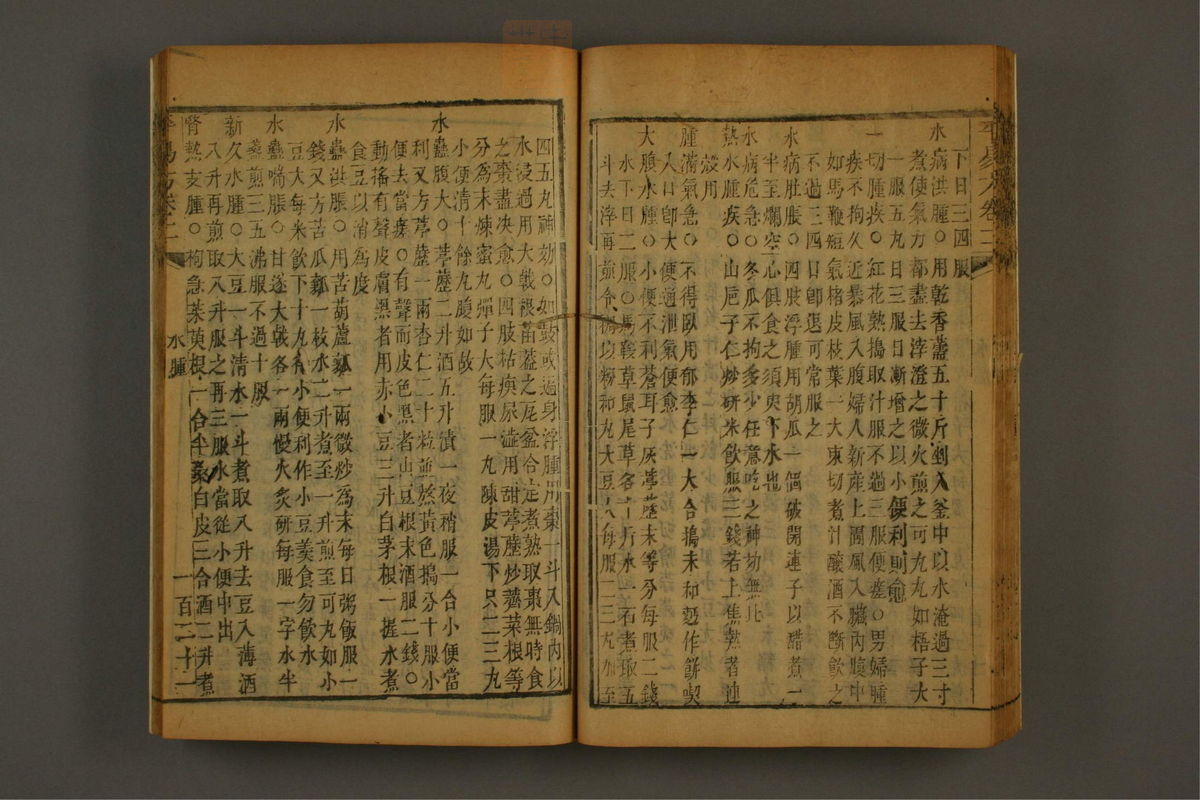 下日三四服
水病洪腫〇用乾香薷五十斤剉入釜中以水淹過三寸
煮使氣力都盡去滓澄之微火煎之可丸丸如梧子大
一服五丸日三服日漸增之以小便利則愈
一切腫疾〇紅花熟搗取汁服不過三服便瘥〇男婦腫
疾不拘久近暴風入腹婦人新産上圊風入臟內腹中
如馬鞭短氣楮皮枝葉一大束切煮汁釀酒不斷飮之
不過三四日卽退可常服之
水病肚脹〇四肢浮腫用胡瓜一個破開連子以醋煮一
半至爛空心俱食之須臾下水也
水病危急〇冬瓜不拘多少任意吃之神効無比
熱水腫疾〇山巵子仁炒研米飮服三錢若上焦熱者連
殼用
腫滿氣急〇不得臥用郁李仁一大合搗末和麪作餅喫
入口卽大便通泄氣便愈
大腹水腫〇小便不利蒼耳子灰葶藶末等分每服二錢
水下日二服〇馬鞭草鼠尾草各十斤水一石煮取五
斗去滓再煎令稠以粉和丸大豆大每服二三丸加至
四五丸神効〇如鼓或遍身浮腫用棗一斗入鍋內以
水浸過用大戟根苗葢之瓦盆合定煮熟取棗無時食
之棗盡決愈〇四肢枯瘐尿澁用甜葶藶炒薺菜根等
分爲末煉蜜丸彈子大每服一丸陳皮湯下只二三丸
小便清十餘丸腹如故
水蠱腹大〇葶藶二升酒五升漬一夜稍服一合小便當
利又方葶藶一兩杏仁二十粒並熬黃色搗分十服小
便去當瘥〇有聲而皮色黑者山豆根末酒服二錢〇
動搖有聲皮膚黑者用赤小豆三升白茅根一握水煮
食豆以消爲度
水蠱洪脹〇用苦葫蘆瓤一兩微炒爲末每日粥飯服一
錢又方苦瓜瓤一枚水二升煮至一升煎至可丸如小
豆大每米飮下十丸待小便利作小豆羮食勿飮水
水蠱喘脹〇甘遂大戟各一兩慢火炙研每服一字水半
盞煎三五沸服不過十服
新久水腫〇大豆一斗清水一斗煮取八升去豆入薄酒
八升再煎取八升服之再三服水當從小便中出
腎熱支腫〇枸急茱萸根一合半桑白皮三合酒二升煮
水腫
一百二十二